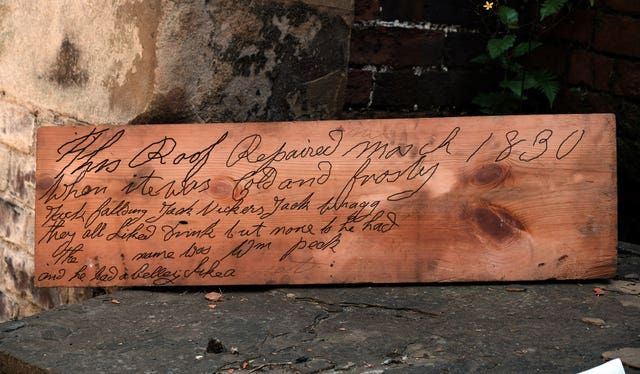 This Roof Repaired march 1830
When it was Cold and frosty
Jack Vickers Jack Wragg
they all Liked Drink but none to be had
the name was Wm peck
and he had a belley Like a